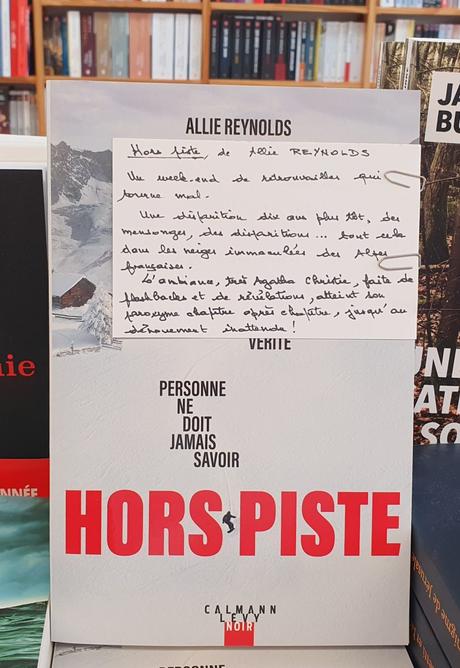 ALLIE REYNOLDS
Hors piste, de Allie REYNOLDS
Un week-end de retrouvailles qui
tourne mal.
Une disparition dix ans plus tôt, des
mensonges, des disparitions... tout cela
dans les neiges immaculées des Alpes
françaises.
L'ambiance, très Agatha Christie, faite de
flashbacks et de révélations, atteint son
paroxysme chapitre après chapitre, jusqu'au
dénouement inattendu !
VÉRITÉ
PERSONNE
NE
DOIT
JAMAIS
SAVOIR
HORS PISTE
CALMANN
LEVY
NOIR
JA
BU
UNE
AT
SO
nie
NNÉE
PERSONNE